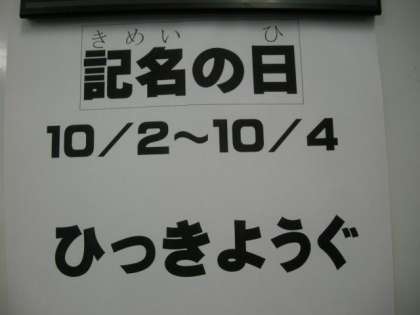 きめい ひ
記名の日
10/2～10/4
ひっきようぐ